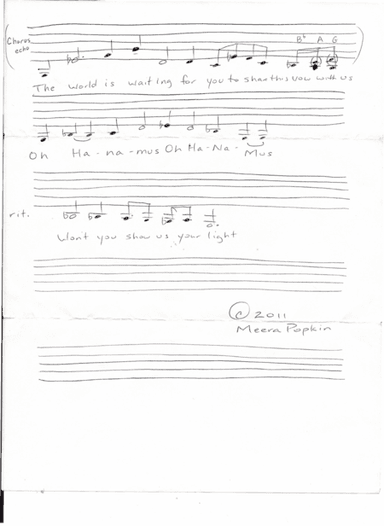 Chorus echo
Bb A G
The world is waiting for you to share this vow with us
Oh Ha - na - mus Oh Ha - Na - Mus
rit.
Wont you show us your light
© 2011
Meera Popkin